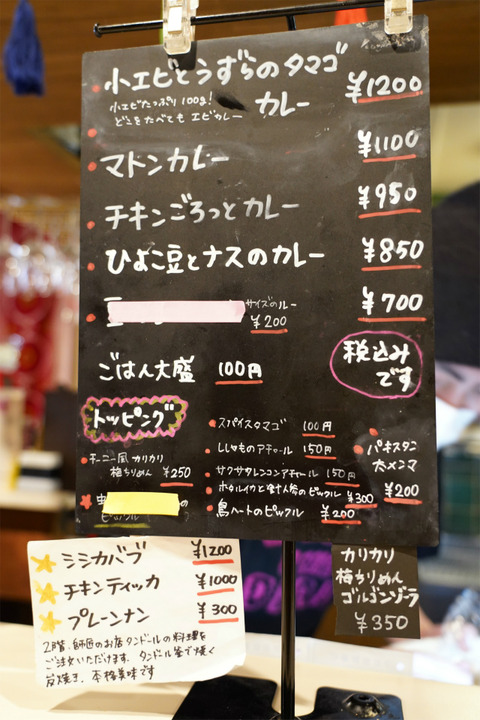 小エビとうずらのタマゴ
カレー ¥1200
小エビたっぷり100g!
どこをたべても エビカレー
マトンカレー ¥1100
チキンごろっとカレー ¥950
ひよこ豆とナスのカレー ¥850
¥700
サイズのルー
¥200
ごはん大盛 100円
税込み
です
トッピング
チーニー風カリカリ
梅ちりめん ¥250
の
ピックル
スパイスタマゴ 100円
ししゃものアチャール 150円
サクサクレンコンアチャール 150円
ホタルイカと金時人参のピックル ¥300
鳥ハートのピックル ¥200
パキスタニ
大メンマ
¥200
シシカバブ ¥1200
チキンティッカ ¥1000
プレーンナン ¥300
2階、師匠のお店タンドールの料理を
ご注文いただけます。タンドール釜で焼く
炭焼き、本格美味です
カリカリ
梅ちりめん
ゴルゴンゾーラ
¥350